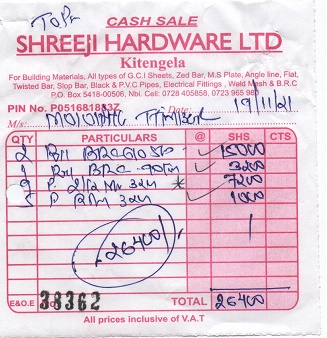 TOP
CASH SALE
SHREEJI HARDWARE LTD
Kitengela
For Building Materials, All types of G.C.I Sheets, Zed Bar, M.S Plate, Angle line, Flat,
Twisted Bar, Slop Bar, Black & P.V.C Pipes, Electrical Fittings , Weld Mesh & B.R.C
P.O. Box 5418-00506, Nbi. Cell: 0728 405858, 0723 965 980
PIN No. P051681883Z Date: 19/11/21
M/s:
QTY PARTICULARS @ SHS. CTS
2 BRC 15000
1 BRC 3200
9 P. 7200
5 P 1000
26400/
E&O.E NO. 38362 TOTAL 26400
All prices inclusive of V.A.T